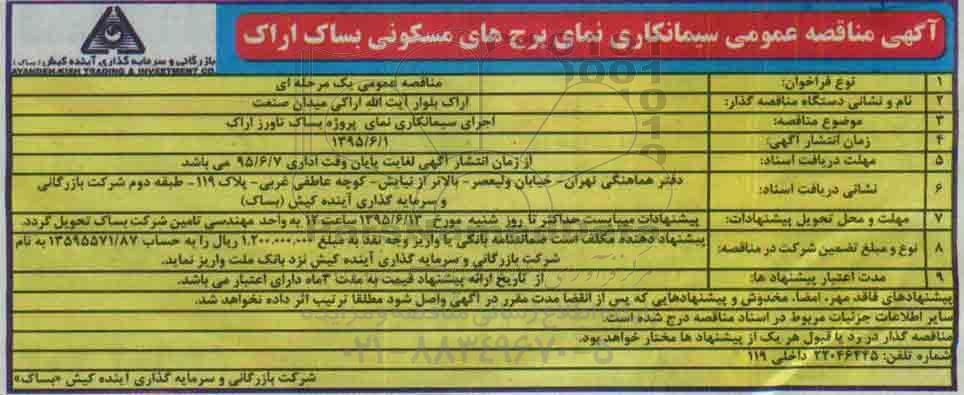 آگهی مناقصه عمومی سیمانکاری نمای برج های مسکونی بساک اراک
بازرگانی و سرمایه گذاری آینده کیش (بساک)
AYANDEH-KISH TRADING & INVESTMENT CO.
۱ نوع فراخوان: مناقصه عمومی یک مرحله ای
۲ نام و نشانی دستگاه مناقصه گذار: اراک بلوار آیت الله اراکی میدان صنعت
۳ موضوع مناقصه: اجرای سیمانکاری نمای پروژه بساک تاورز اراک
۴ زمان انتشار آگهی: ۱۳۹۵/۶/۱
۵ مهلت دریافت اسناد: از زمان انتشار آگهی لغایت پایان وقت اداری ۹۵/۶/۷ می باشد
۶ نشانی دریافت اسناد: دفتر هماهنگی تهران- خیابان ولیعصر- بالاتر از نیایش- کوچه عاطفی غربی- پلاک ۱۱۹- طبقه دوم شرکت بازرگانی
و سرمایه گذاری آینده کیش (بساک)
۷ مهلت و محل تحویل پیشنهادات: پیشنهادات میبایست حداکثر تا روز شنبه مورخ ۱۳۹۵/۶/۱۳ ساعت ۱۲ به واحد مهندسی تامین شرکت بساک تحویل گردد.
۸ نوع و مبلغ تضمین شرکت در مناقصه: پیشنهاد دهنده مکلف است ضمانتنامه بانکی یا واریز وجه نقد به مبلغ ۱.۲۰۰.۰۰۰.۰۰۰ ریال را به حساب ۱۳۵۹۵۵۷۱/۸۷ به نام
شرکت بازرگانی و سرمایه گذاری آینده کیش نزد بانک ملت واریز نماید.
۹ مدت اعتبار پیشنهاد ها: از تاریخ ارائه پیشنهاد قیمت به مدت ۳ماه دارای اعتبار می باشد.
پیشنهادهای فاقد مهر، امضا، مخدوش و پیشنهادهایی که پس از انقضا مدت مقرر در آگهی واصل شود مطلقا ترتیب اثر داده نخواهد شد.
سایر اطلاعات جزئیات مربوط در اسناد مناقصه درج شده است.
مناقصه گذار در رد یا قبول هر یک از پیشنهاد ها مختار خواهد بود.
شماره تلفن: ۲۲۰۴۶۴۴۵ داخلی ۱۱۹
شرکت بازرگانی و سرمایه گذاری آینده کیش «بساک»
۰۲۱-۸۸۳۴۹۶۷۰-۵